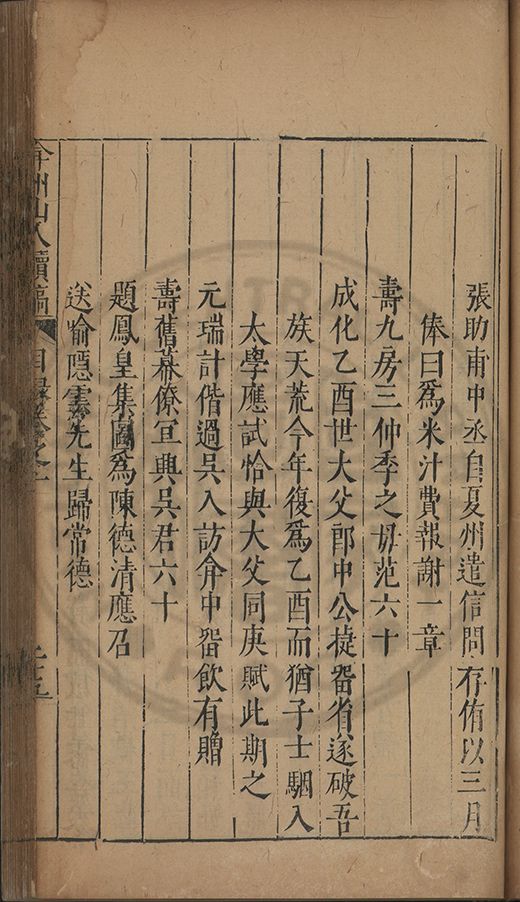 張助甫中丞自夏州遣信問存侑以三月
俸曰為米汁費報謝一章
壽九房三仲季之母范六十
成化乙酉世大父郎中公㨗畱省遂破吾
族天荒今年復為乙酉而猶子士駰入
太學應試恰與大父同庚賦此期之
元瑞計偕過吳入訪弇中畱飲有贈
壽舊幕僚宜興吳君六十
題鳳皇集圖為陳德清應召
送喻隱雲先生歸常德
弇州山人續稿 目錄卷之一